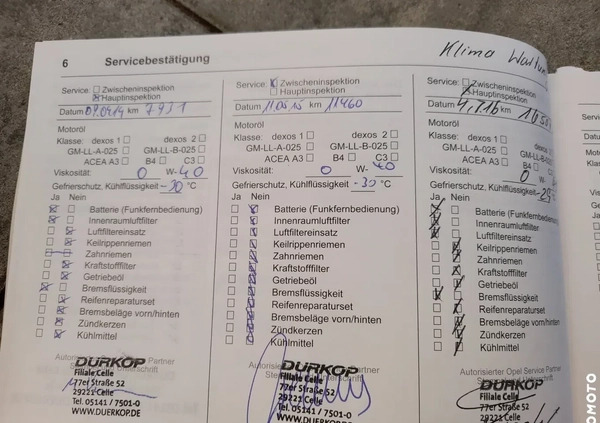 6 Servicebestätigung
Klima
Service: Zwischeninspektion
Hauptinspektion
Datum 09.04.14 km 7931
Motoröl
Klasse: dexos 1 dexos 2
GM-LL-A-025 GM-LL-B-025
ACEA A3 B4 C3
Viskosität: 0 W- 40
Gefrierschutz, Kühlflüssigkeit -30 °C
Ja Nein
Batterie (Funkfernbedienung)
Innenraumluftfilter
Luftfiltereinsatz
Keilrippenriemen
Zahnriemen
Kraftstofffilter
Getriebeöl
Bremsflüssigkeit
Reifenreparaturset
Bremsbeläge vorn/hinten
Zündkerzen
Kühlmittel
DÜRKOP
Filiale Celle
77er Straße 52
29221 Celle
Tel. 05141 / 7501-0
WWW.DUERKOP.DE
Service: Zwischeninspektion
Hauptinspektion
Datum 11.05.15 km 11460
Motoröl
Klasse: dexos 1 dexos 2
GM-LL-A-025 GM-LL-B-025
ACEA A3 B4 C3
Viskosität: 0 W- 40
Gefrierschutz, Kühlflüssigkeit -30 °C
Ja Nein
Batterie (Funkfernbedienung)
Innenraumluftfilter
Luftfiltereinsatz
Keilrippenriemen
Zahnriemen
Kraftstofffilter
Getriebeöl
Bremsflüssigkeit
Reifenreparaturset
Bremsbeläge vorn/hinten
Zündkerzen
Kühlmittel
DÜRKOP
Filiale Celle
77er Straße 52
29221 Celle
Tel. 05141 / 7501-0
WWW.DUERKOP.DE
Service: Zwischeninspektion
Hauptinspektion
Datum km
Motoröl
Klasse: dexos 1 dexos
GM-LL-A-025 GM-LL-B-025
ACEA A3 B4 C3
Viskosität: 0 W-
Gefrierschutz, Kühlflüssigkeit
Ja Nein
Batterie (Funkfernbedienung)
Innenraumluftfilter
Luftfiltereinsatz
Keilrippenriemen
Zahnriemen
Kraftstofffilter
Getriebeöl
Bremsflüssigkeit
Reifenreparaturset
Bremsbeläge vorn/hinten
Zündkerzen
Kühlmittel
Autorisierter Opel Service Partner
DÜRKOP
Filiale Celle
77er Straße 52
29221 Celle
Tel. 05141 / 7501-0